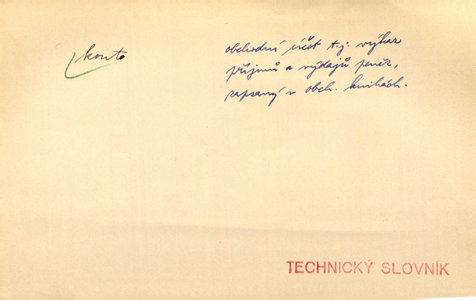 konto
obchodní účet t.j. výkaz
příjmů a výdajů peněz,
zapsaný v obch. knihách.
TECHNICKÝ SLOVNÍK